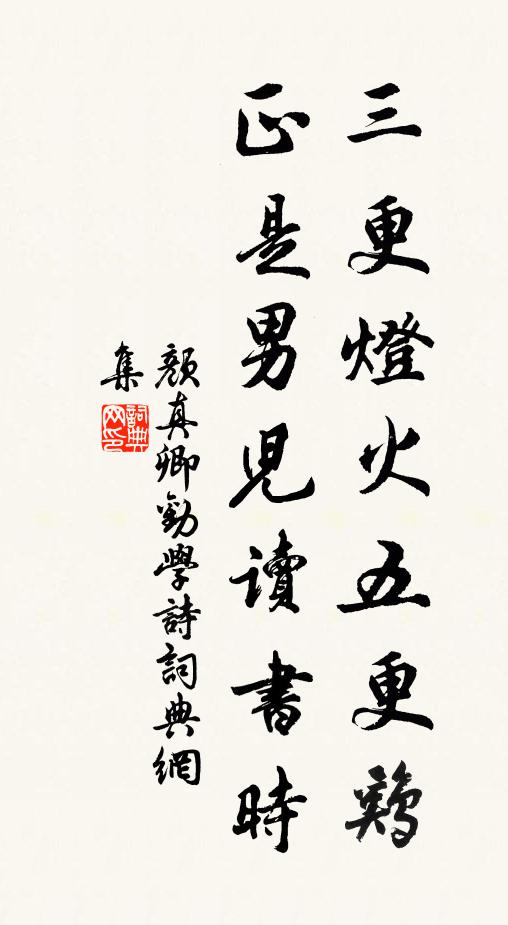 三更燈火五更鷄
正是男児讀書時
顔真卿勸學詩詞典網
集
詞典網印